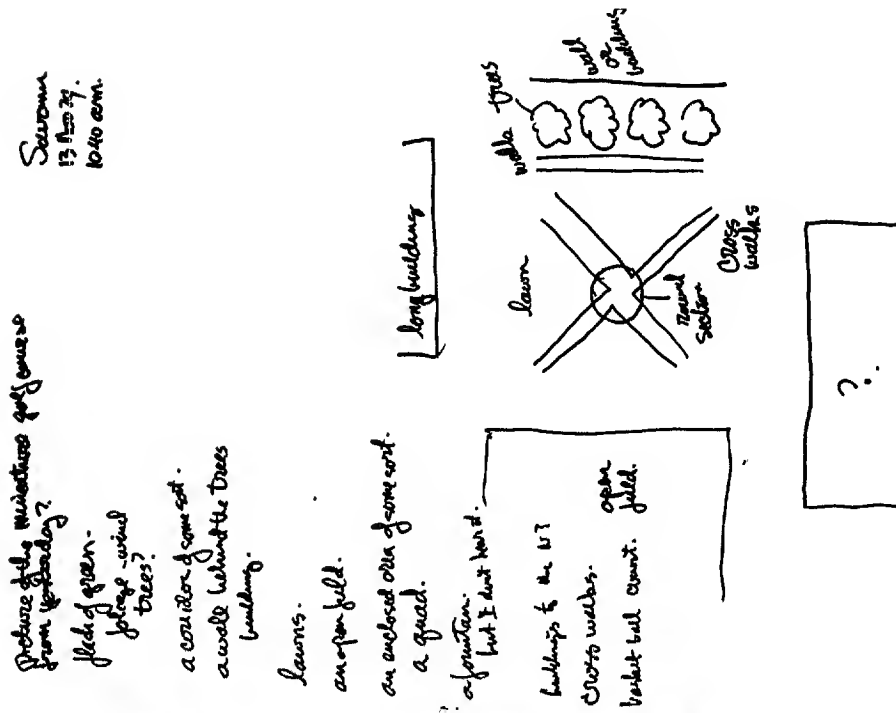 1040 am.
Picture of the miniature golf course
from yesterday?
flash of green.
foliage
trees?
a corridor of some sort.
a wall behind the trees
building.
lawns.
an open field.
an enclosed area of some sort.
a quad.
? a fountain.
but I don't hear it.
buildings to the N?
cross walks.
basket ball court.
open
field.
long building
lawn
round
section
cross
walks
walks
trees
wall
or
building
?